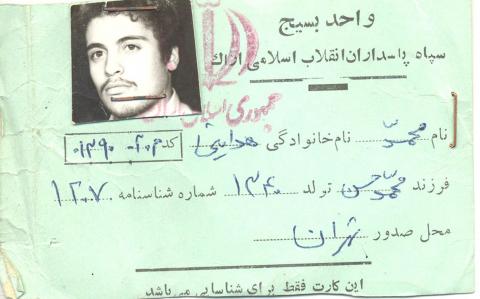 واحد بسیج
سپاه پاسداران انقلاب اسلامی اراک
جمهوری اسلامی ایران
نام محمد نام خانوادگی کد
فرزند محمدحسن تولد ۱۳۴۰ شماره شناسنامه ۱۲۰۷
محل صدور تهران
این کارت فقط برای شناسایی می‌باشد